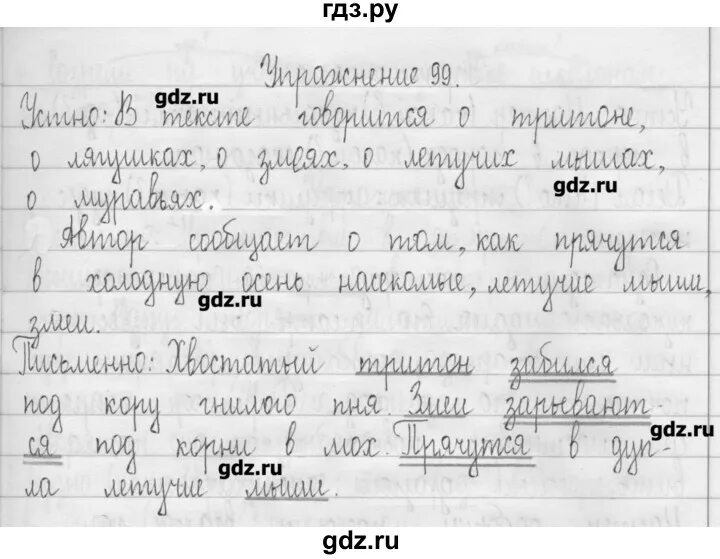 гдз.ру
Упражнение 99.
gdz.ru
Устно: В тексте говорится о тритоне,
о лягушках, о змеях, о летучих мышах,
gdz.ru
о муравьях.
Автор сообщает о том, как прячутся
в холодную осень насекомые, летучие мыши,
gdz.ru
змеи.
Письменно: Хвостатый тритон забился
под кору гнилого пня. Змеи зарывают
gdz.ru
ся под корни в мох. Прячутся в дуп-
gdz.ru
ла летучие мыши.
gdz.ru